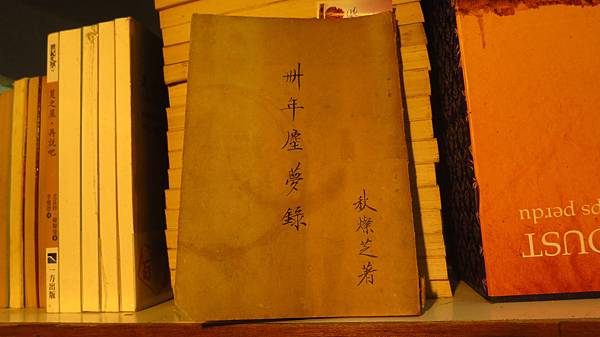 卅年塵夢錄
秋燦芝著
夏之屋，再說吧
一方出版
OUST
ps perdu